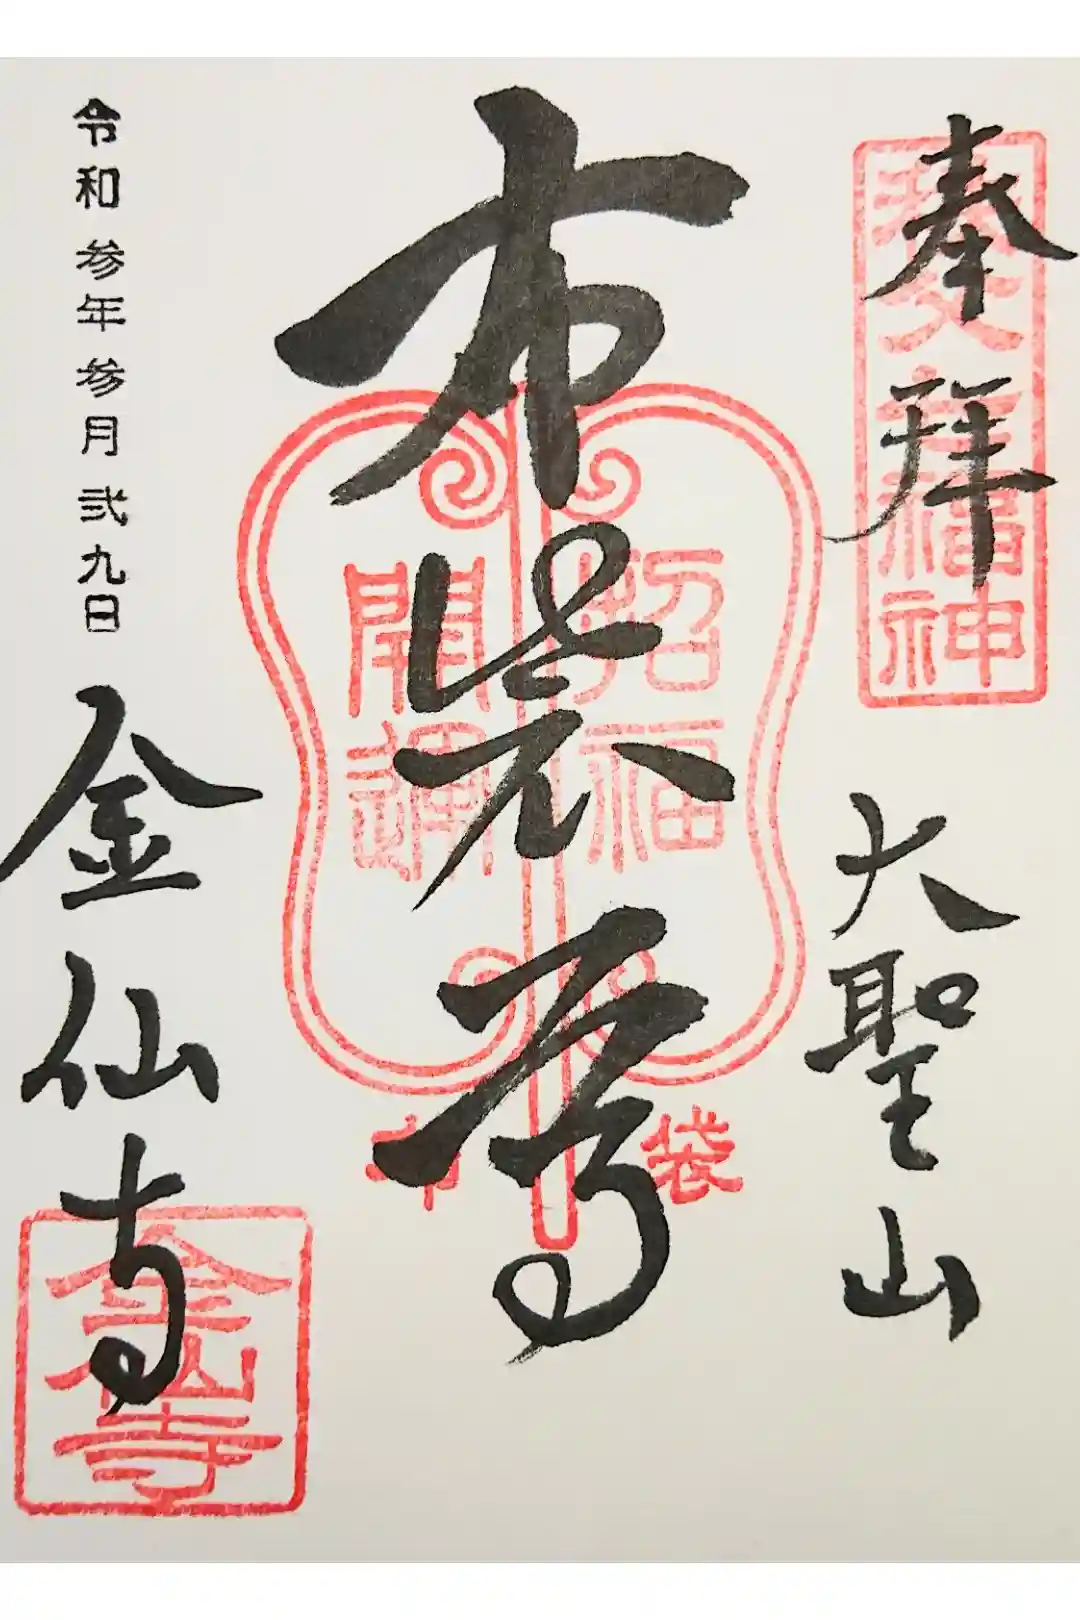 奉拝
秩父七福神
大聖山
布袋尊
招福
開運
布袋
令和参年参月弐九日
金仙寺
金仙寺